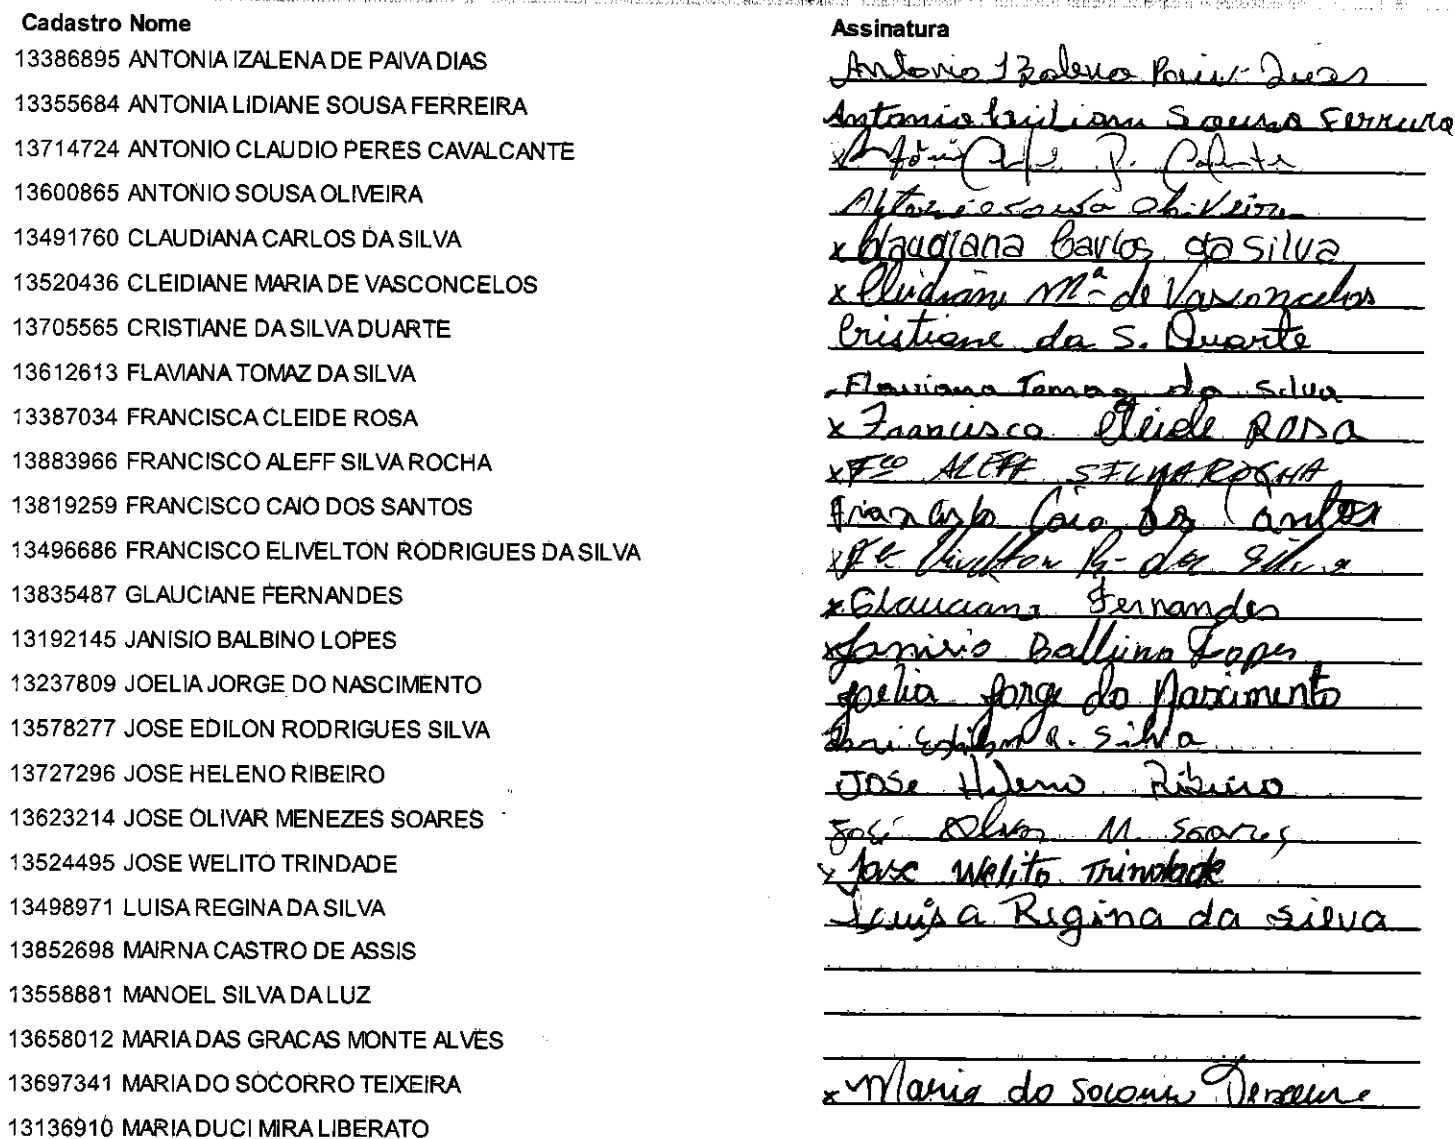 Cadastro Nome Assinatura
13386895 ANTONIA IZALENA DE PAIVA DIAS Antonia Izalena Paiva Dias
13355684 ANTONIA LIDIANE SOUSA FERREIRA Antonia Sousa Ferreira
13714724 ANTONIO CLAUDIO PERES CAVALCANTE x P.
13600865 ANTONIO SOUSA OLIVEIRA Antonio Sousa Oliveira
13491760 CLAUDIANA CARLOS DA SILVA x Claudiana Carlos da Silva
13520436 CLEIDIANE MARIA DE VASCONCELOS x Cleidiane Mª de Vasconcelos
13705565 CRISTIANE DA SILVA DUARTE Cristiane da S. Duarte
13612613 FLAVIANA TOMAZ DA SILVA Flaviana Tomaz da Silva
13387034 FRANCISCA CLEIDE ROSA x Francisca Cleide Rosa
13883966 FRANCISCO ALEFF SILVA ROCHA x Fco ALEFF SILVA ROCHA
13819259 FRANCISCO CAIO DOS SANTOS Francisco Caio dos Santos
13496686 FRANCISCO ELIVELTON RODRIGUES DA SILVA x R. da Silva
13835487 GLAUCIANE FERNANDES x Glauciane Fernandes
13192145 JANISIO BALBINO LOPES x Janisio Balbino Lopes
13237809 JOELIA JORGE DO NASCIMENTO Joelia Jorge do Nascimento
13578277 JOSE EDILON RODRIGUES SILVA Edilson R. Silva
13727296 JOSE HELENO RIBEIRO José Heleno Ribeiro
13623214 JOSE OLIVAR MENEZES SOARES José Olivar M. Soares
13524495 JOSE WELITO TRINDADE x Jose Welito Trindade
13498971 LUISA REGINA DA SILVA Luisa Regina da Silva
13852698 MAIRNA CASTRO DE ASSIS
13558881 MANOEL SILVA DA LUZ
13658012 MARIA DAS GRACAS MONTE ALVES
13697341 MARIA DO SOCORRO TEIXEIRA x Maria do Socorro Teixeira
13136910 MARIA DUCI MIRA LIBERATO